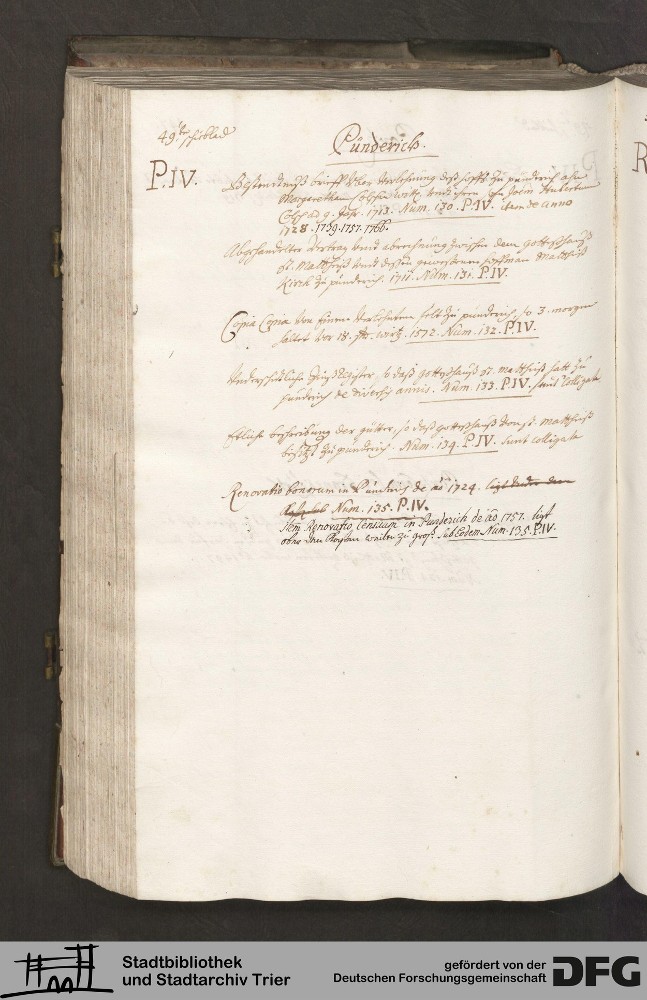 49.te schiblad
Pünderich.
P.IV.
Bestendnuß brieff über verlehnung deß hoffs zu pünderich ahn
Margaretham
d. 9. Jan. 1713. Num. 130. P.IV. item de anno
1728. 1739. 1757. 1766.
Abgehandelter vertrag undt abrechnung zwischen dem gottshauß
St. Mattheiß undt dessen gewesenen hoffman Mattheiß
Kirch zu pünderich. 1711. Num. 131. P.IV.
Copia Copiæ von einem verlehnten felt zu pünderich, so 3. morgen
haltet vor 18. 1572. Num. 132. P.IV.
Underschidliche Zinß Register, so daß gottshauß St. Mattheiß hatt zu
pünderich de diversis annis. Num. 133. P.IV. sunt colligata
Etliche beschreibung der gütter, so daß gotteshauß von St. Mattheiß
besitzt zu pünderich. Num. 134. P.IV. sunt colligata
Renovatio bonorum in Pünderich de ao 1724. ligt under dem
Num. 135. P.IV.
Item Renovatio Censuum in Punderich de ao 1757. ligt
oben dem Kasten weilen zu groß. sub Eodem Num. 135. P.IV.
R
Stadtbibliothek
und Stadtarchiv Trier
gefördert von der
Deutschen Forschungsgemeinschaft
DFG